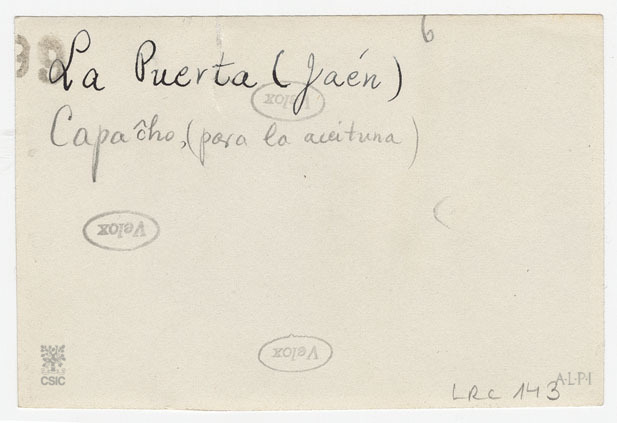 6
99
La Puerta (Jaén)
Velox
Capaĉho, (para la aceituna)
Velox
Velox
CSIC
A·L·P·I
LRC 143